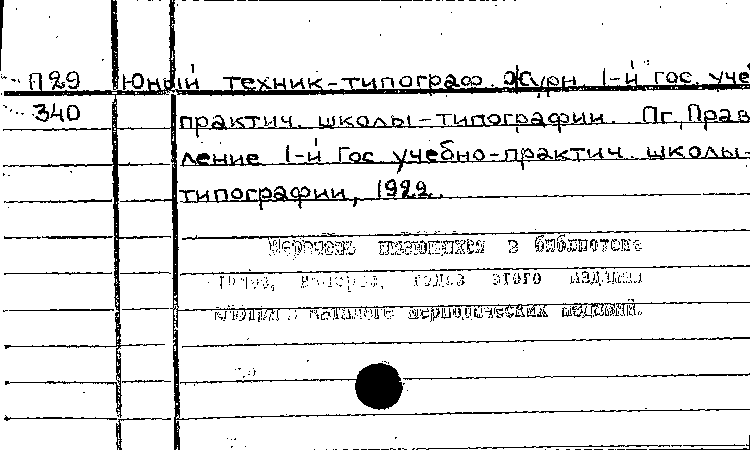 П29 Юный техник-типограф. Журн. 1-й гос. уче
340 практич. школы-типографии. Пг, Прав
ление 1-й Гос учебно-практич. школы-
типографии, 1922.
Перечень имеющихся в библиотеке
томов, номеров, годов этого издания
смотри в каталоге периодических изданий.